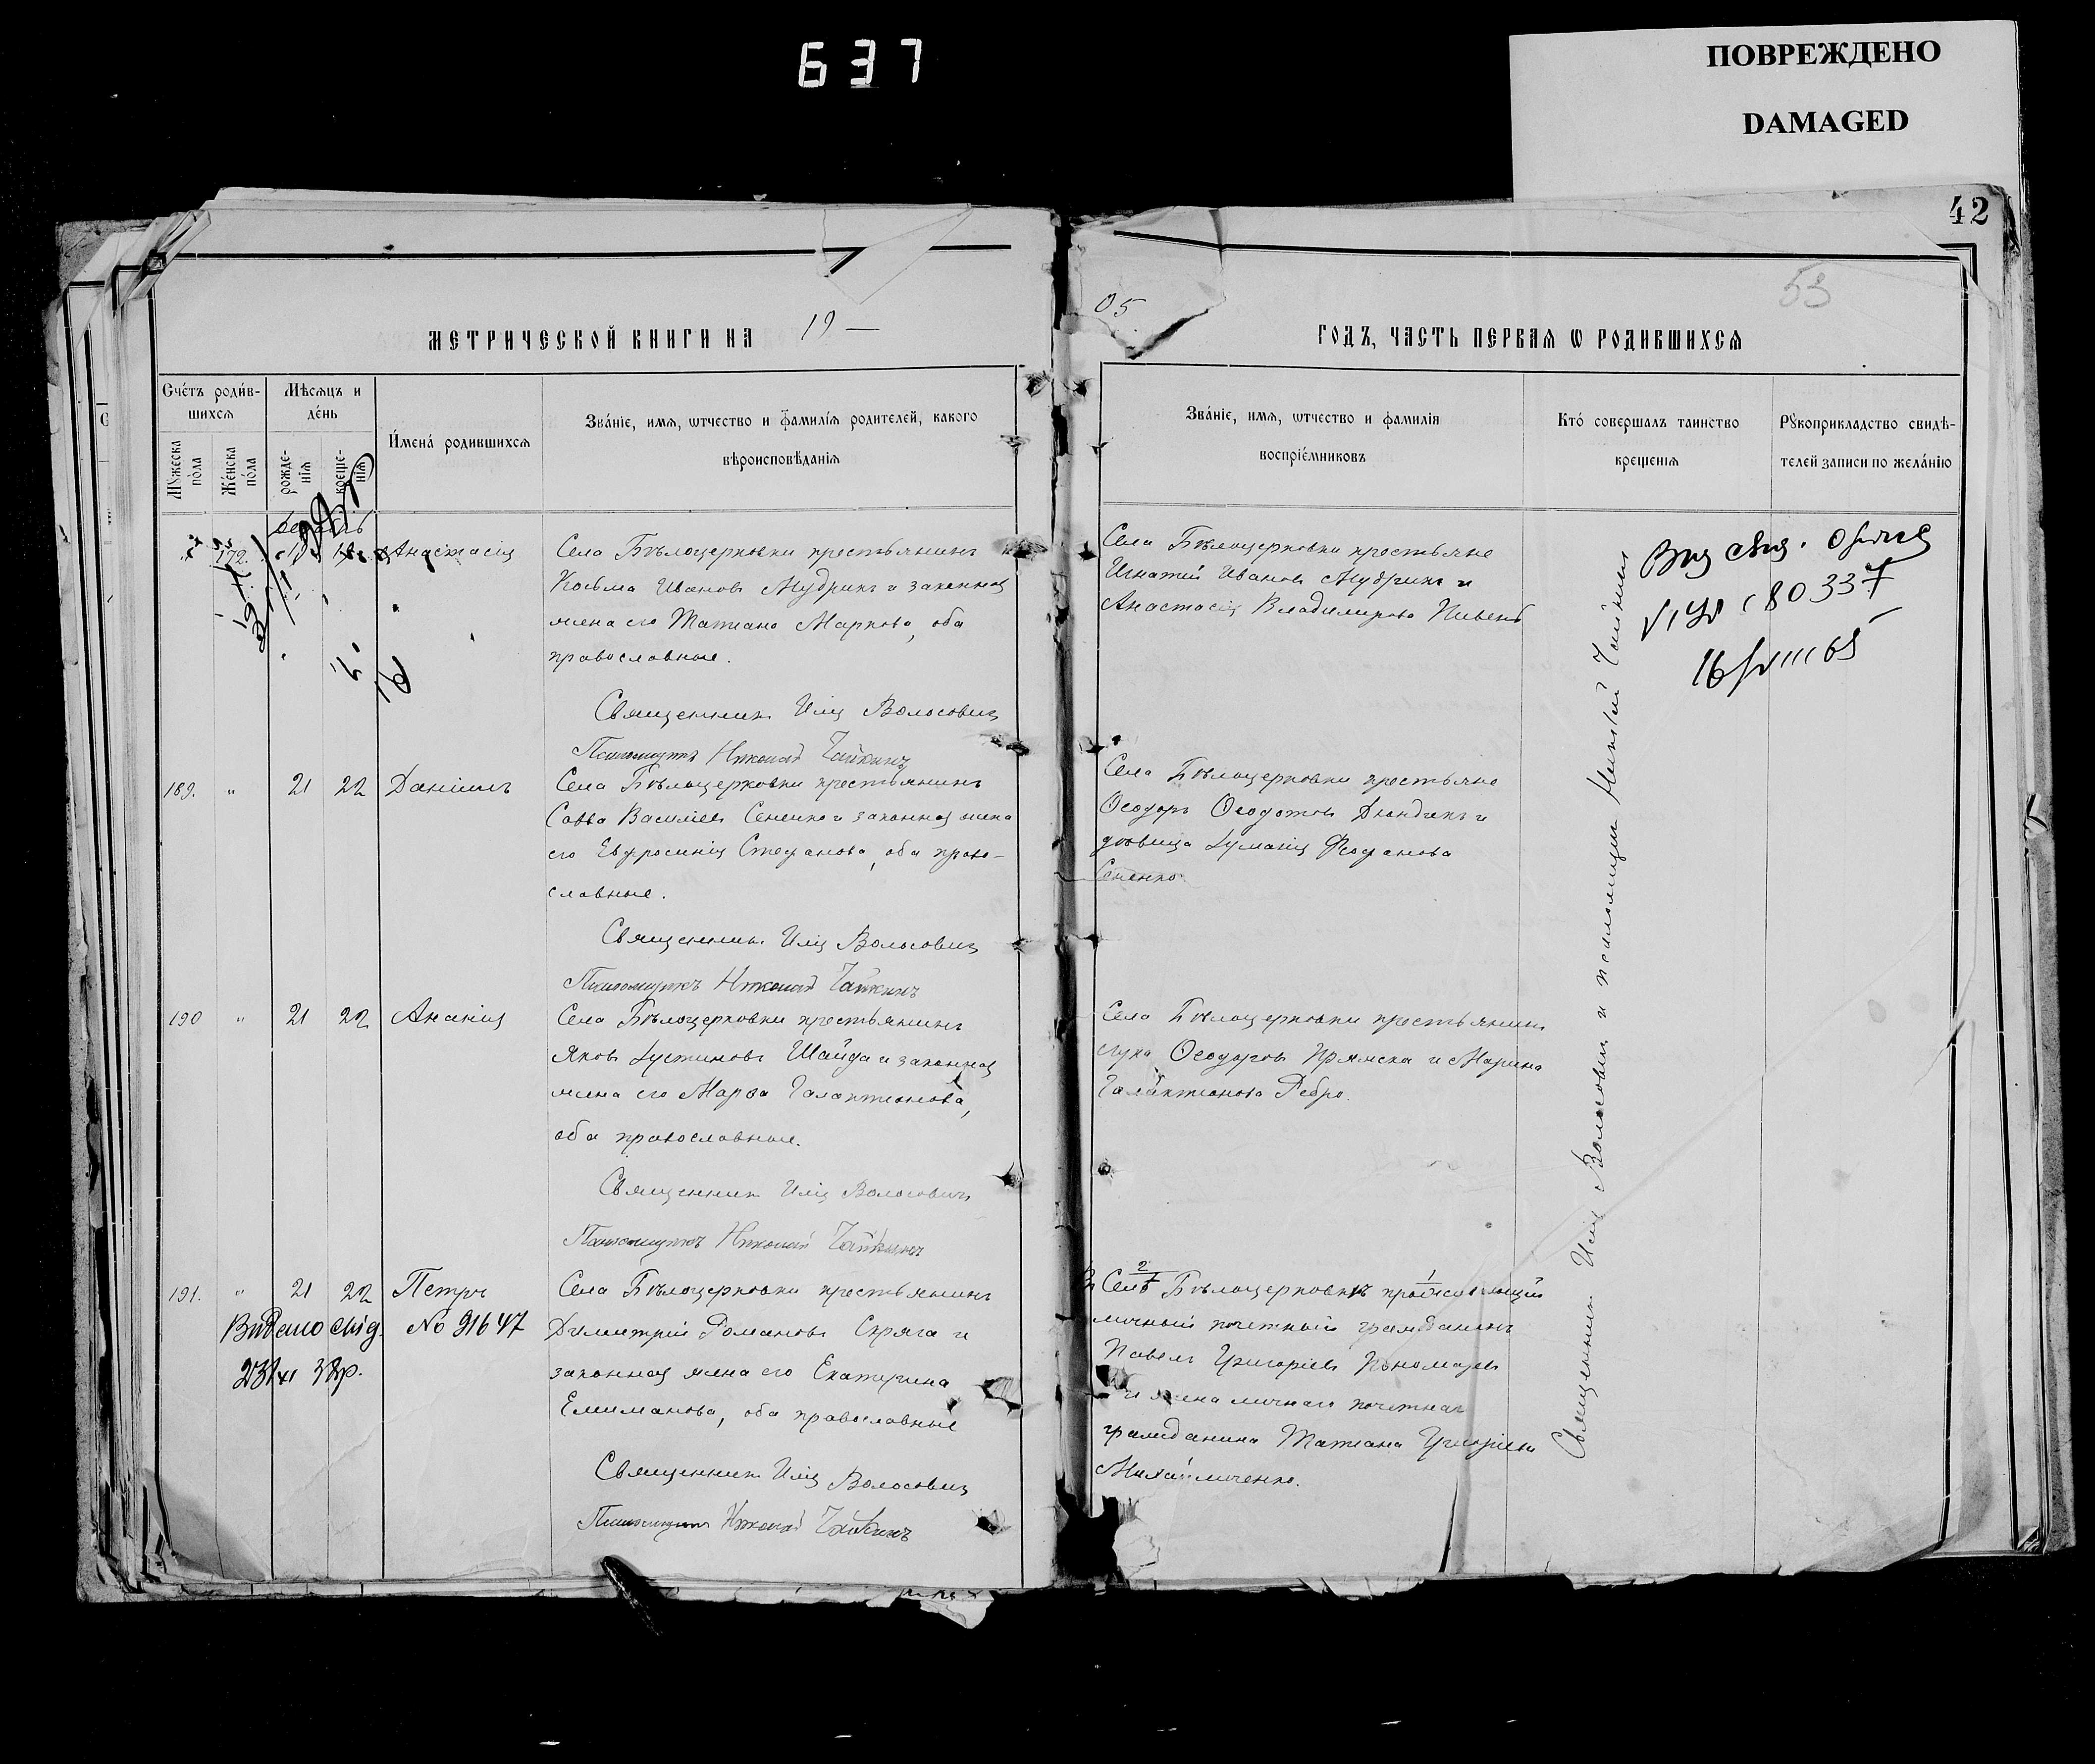 637
ПОВРЕЖДЕНО
DAMAGED
42
53
МЕТРИЧЕСКОЙ КНИГИ НА 19—
05
ГОДЪ, ЧАСТЬ ПЕРВАЯ Ѡ РОДИВШИХСЯ
Сче́тъ роди́в-
шихся
Мѣсяцъ и
де́нь
Мꙋжеска по́ла
Же́нска по́ла
рожде-
нія
креще-
нія
И́мена́ родившихся
Зва́ніе, имя, ѿтчество и фамилія родителей, какого
вѣроисповѣданія
Зва́ніе, имя, ѿтчество и фамилія
воспріе́мниковъ
Кто́ совершалъ таинство
крещенія
Рꙋкоприкладство свидѣ-
телей записи по жела́нію
172. Анастасія
Села Бѣлоцерковки крестьянинъ
Косьма Ивановъ Мудрикъ и законная
жена его Татиана Маркова, оба
православные.
Священникъ Илія Волосовичъ
Псаломщикъ Николай Чайкинъ
Села Бѣлоцерковки крестьяне
Игнатій Ивановъ Мудрикъ и
Анастасія Владимирова Пивень
80337
189. " 21 22 Даніилъ
Села Бѣлоцерковки крестьянинъ
Савва Васильевъ Сененко и законная жена
его Евфросинія Стефанова, оба право-
славные.
Священникъ Илія Волосовичъ
Псаломщикъ Николай Чайкинъ
Села Бѣлоцерковки крестьяне
Ѳеодоръ Ѳеодотовъ
вдовица
190 " 21 22 Ананія
Села Бѣлоцерковки крестьянинъ
Яковъ Іустиновъ Шайда и законная
жена его Марѳа Галактионова,
оба православные.
Священникъ Илія Волосовичъ
Псаломщикъ Николай Чайкинъ
Села Бѣлоцерковки крестьянинъ
Лука Ѳеодоровъ и Марина
Галактионова Ребро.
191. " 21 22 Петръ
Видано свід. No 91647
Села Бѣлоцерковки крестьянинъ
Димитрій Романовъ Скряга и
законная жена его Екатерина
оба православные
Священникъ Илія Волосовичъ
Псаломщикъ Николай Чайкинъ
личный почетный гражданинъ
Павелъ Григоріевъ Пономаревъ
и жена личнаго почетнаго
гражданина Татиана Григоріева
Михайличенко.
Священникъ Илія Волосовичъ и псаломщикъ Николай Чайкинъ